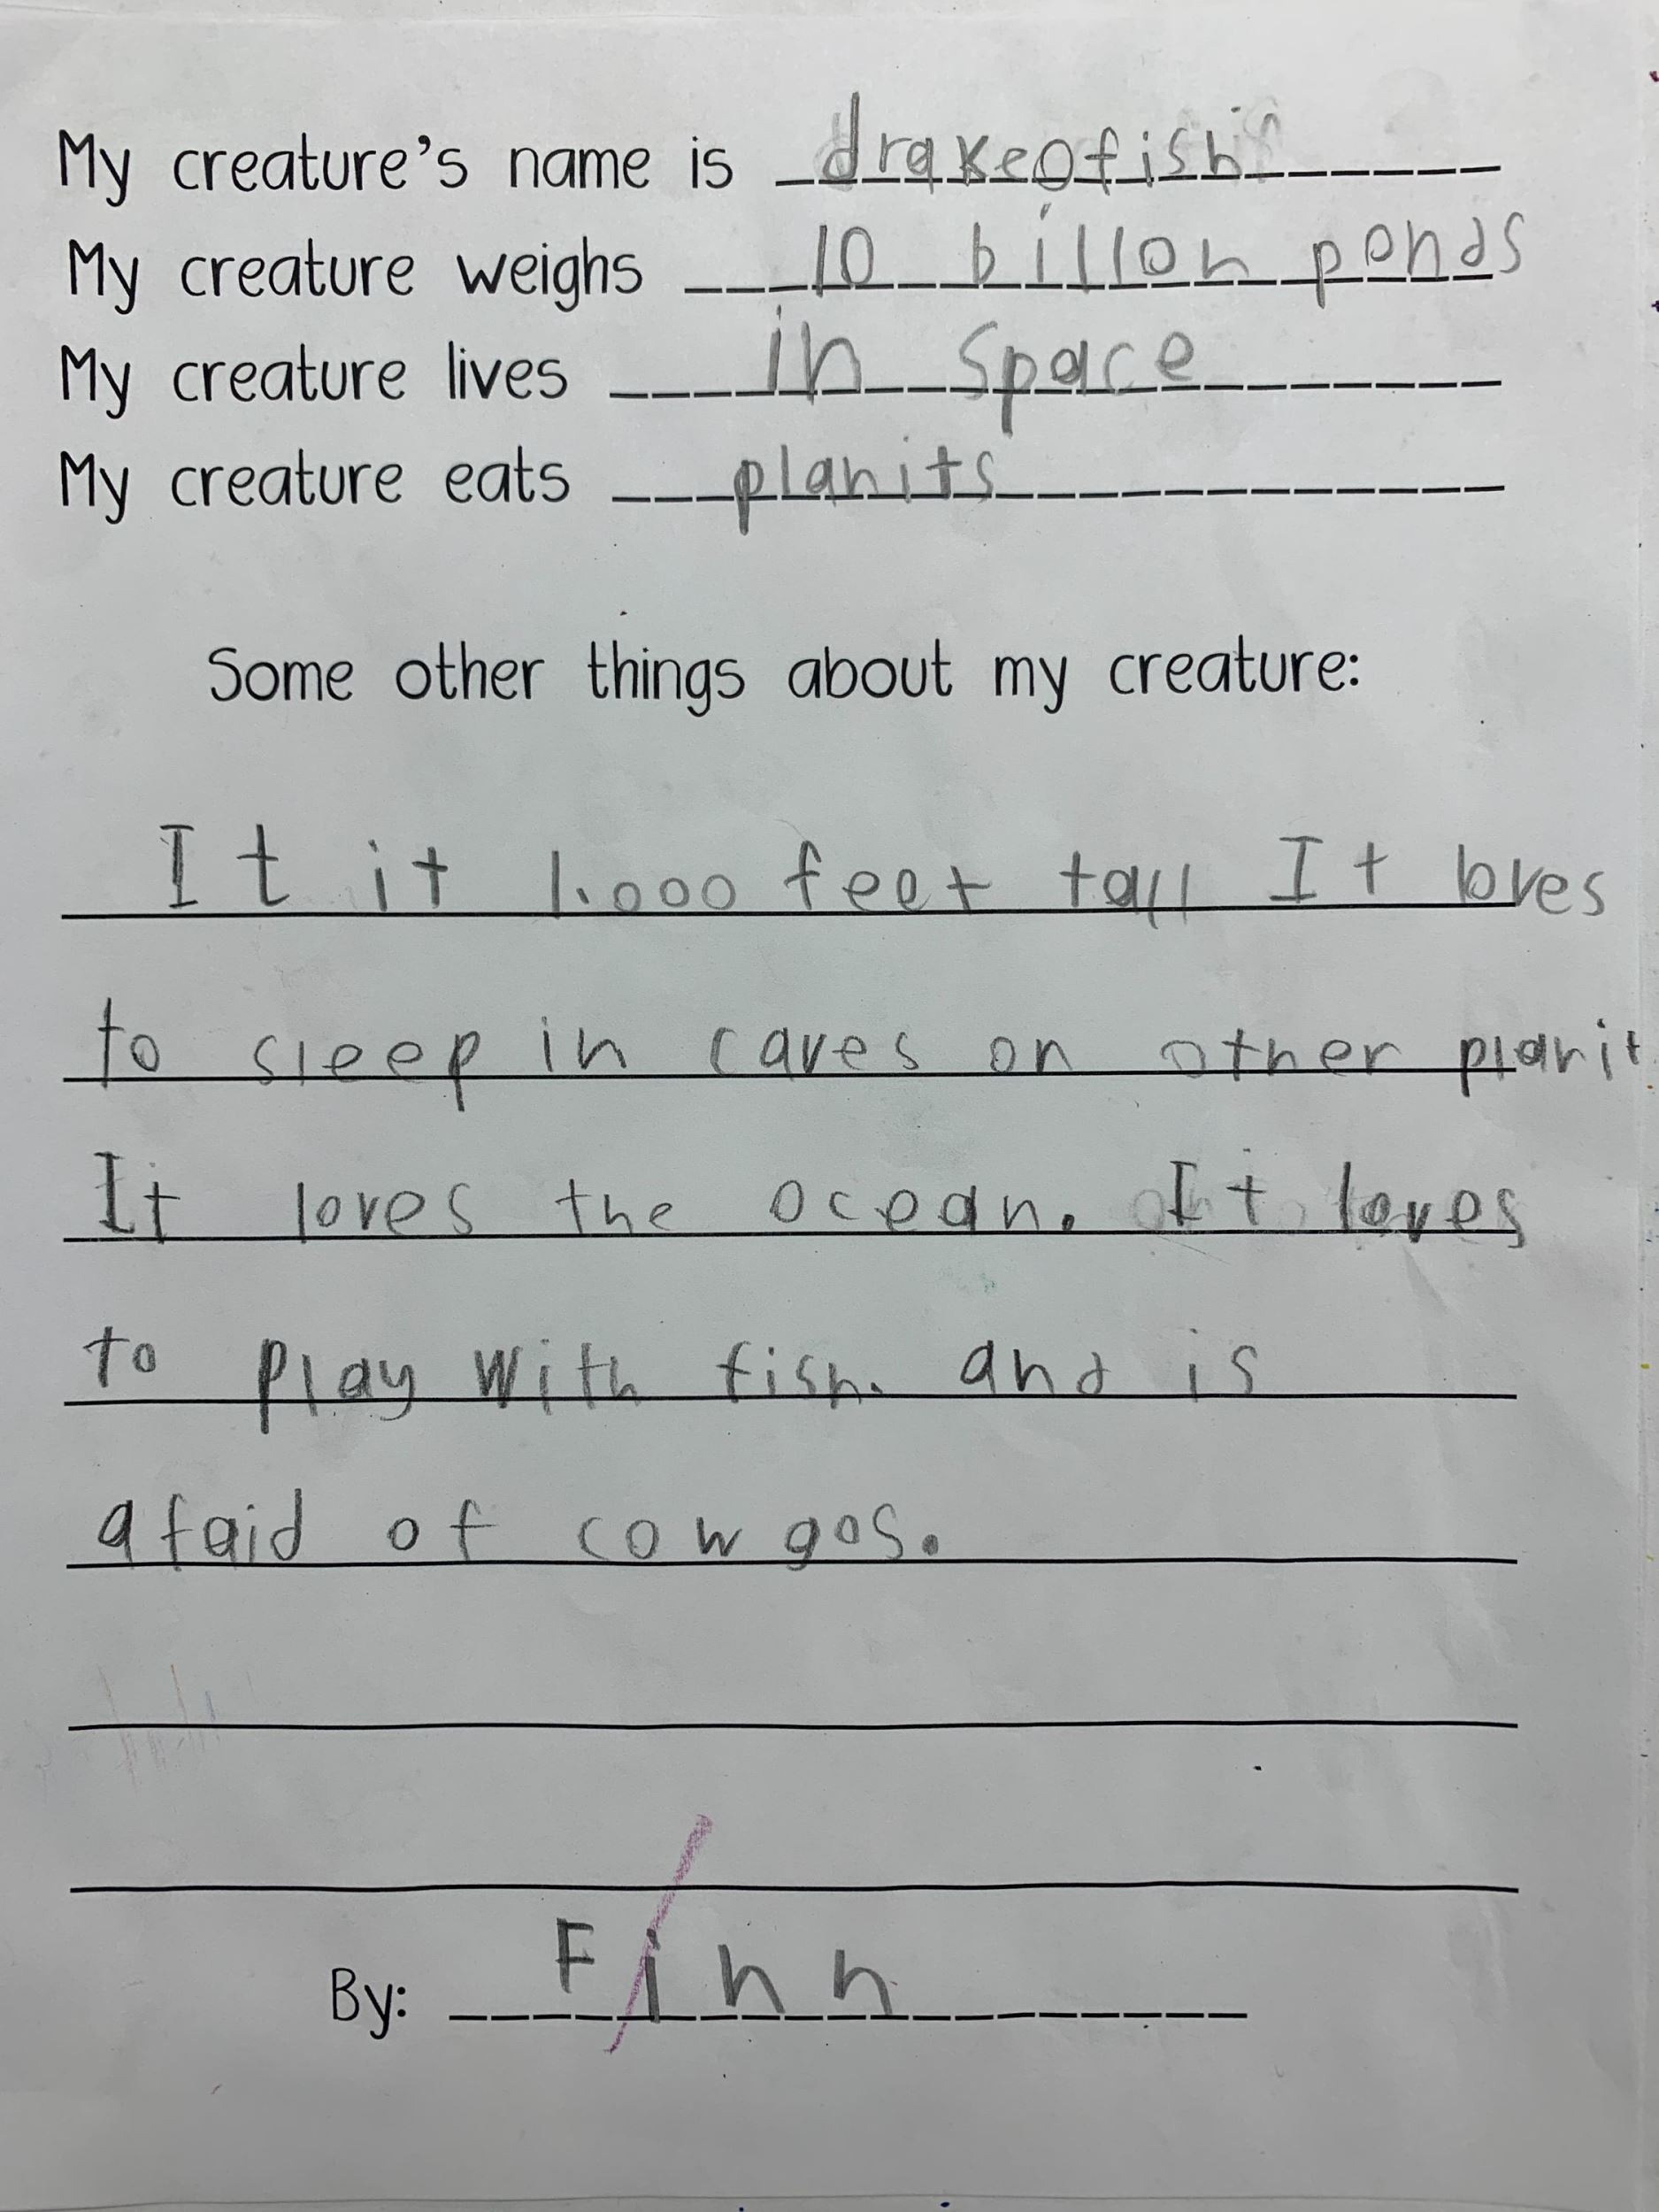 My creature's name is drakeofish
My creature weighs 10 billon ponds
My creature lives in space
My creature eats planits
Some other things about my creature:
It it 1.000 feet tall It loves
to sleep in caves on other planit
It loves the ocean. It loves
to play with fish. and is
afaid of cow gos.
By: Finn